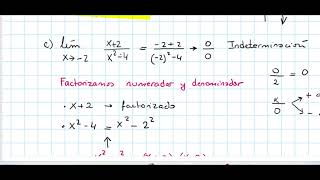 c) lim x→-2 x+2 / x²-4 = -2+2 / (-2)²-4 → 0/0 Indeterminación
0/2 = 0
Factorizamos numerador y denominador
• x+2 → factorizado
• x²-4 = x² - 2²